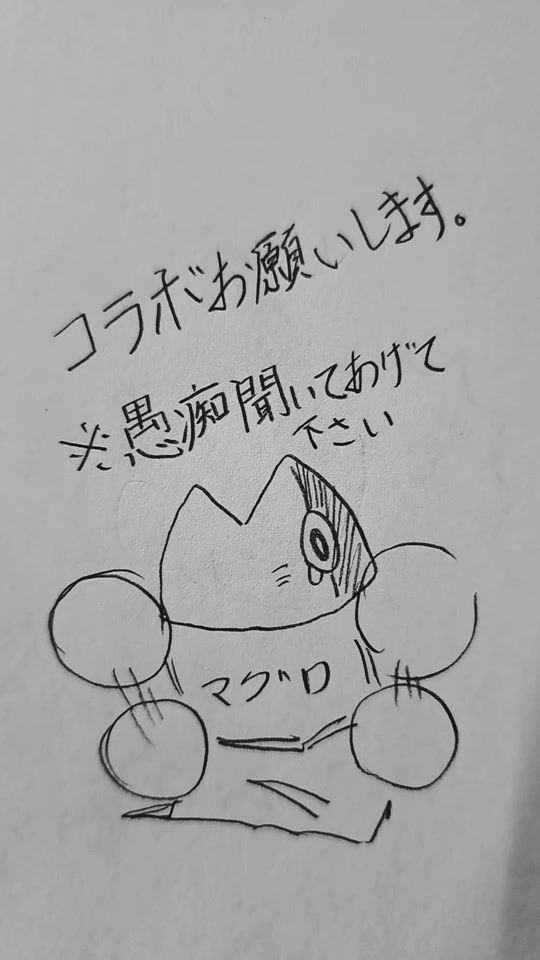 コラボお願いします。
※愚痴聞いてあげて
下さい
マグロ